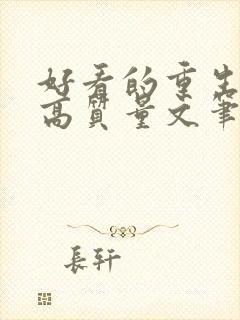 好看的重生
高质量文笔
長轩